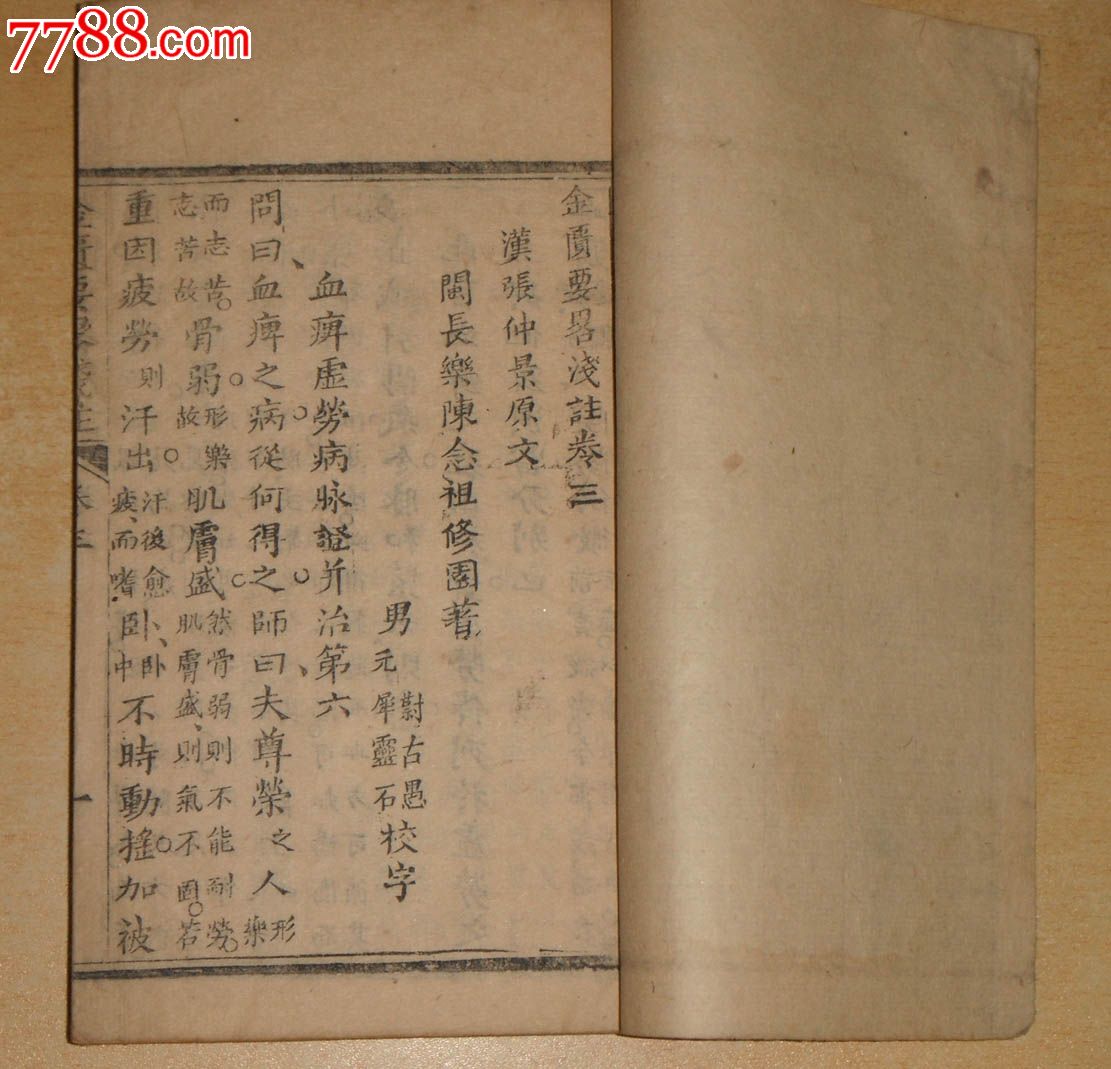 7788.com
金匱要畧淺註卷三
漢張仲景原文
閩長樂陳念祖修園著
男元蔚古愚犀靈石校字
血痺虛勞病脉證并治第六
問曰、血痺之病從何得之。師曰、夫尊榮之人形樂
而志苦。志苦故骨弱。形樂故肌膚盛。然骨弱則不能耐勞。肌膚盛、則氣不固。若
重因疲勞則汗出。汗後愈疲、而嗜卧、卧中不時動搖。加被
金匱要畧淺註 卷三 一